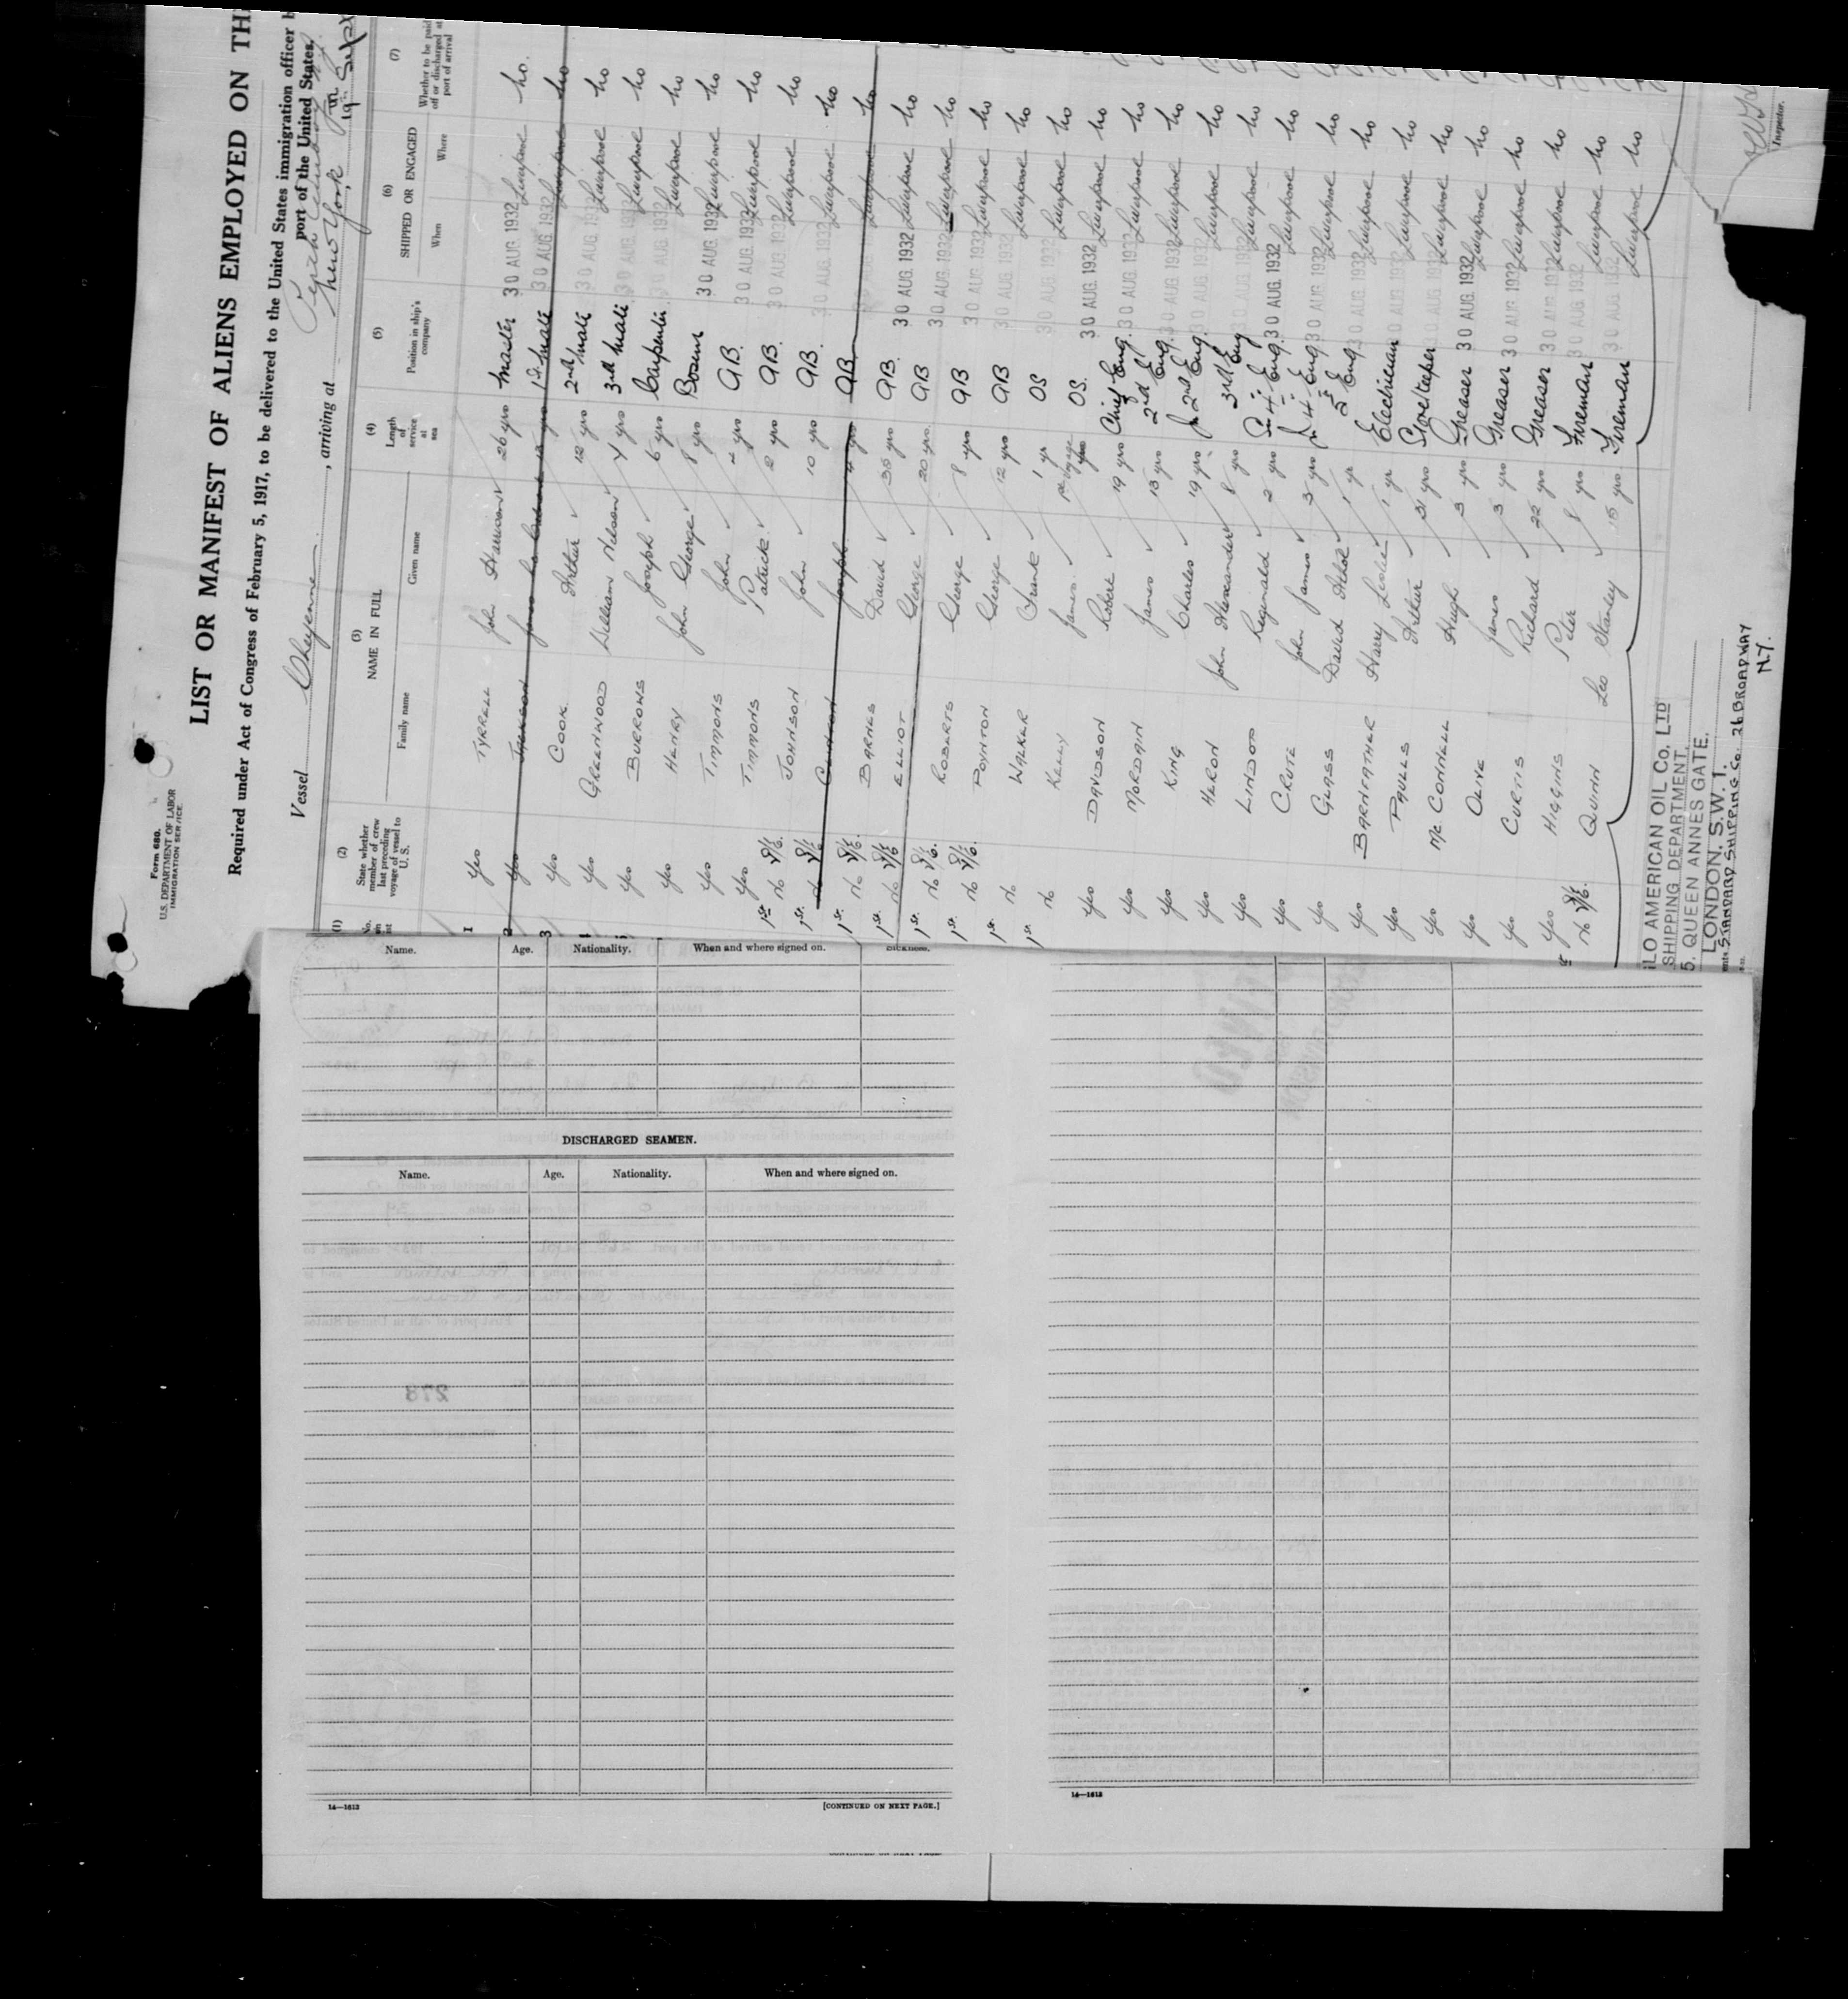 Form 680.
U.S. DEPARTMENT OF LABOR
IMMIGRATION SERVICE
LIST OR MANIFEST OF ALIENS EMPLOYED ON TH
Required under Act of Congress of February 5, 1917, to be delivered to the United States immigration officer
port of the United States,
Vessel Cheyenne, arriving at New York, 19
(1) (2) (3) (4) (5) (6) (7)
State whether member of crew last preceding voyage of vessel to U.S.
NAME IN FULL
Family name Given name
Length of service at sea
Position in ship's company
SHIPPED OR ENGAGED
When Where
Whether to be paid off or discharged at port of arrival
1 Yes TYRRELL John Harrison 26 yrs Master 30 AUG. 1932 Liverpool no.
2 Yes JACKSON James 1st Mate 30 AUG. 1932 Liverpool no
3 Yes COOK Arthur 12 yrs 2nd Mate 30 AUG. 1932 Liverpool no
4 Yes GREENWOOD William Nelson 4 yrs 3rd Mate 30 AUG. 1932 Liverpool no
5 Yes BURROWS Joseph 6 yrs Carpenter 30 AUG. 1932 Liverpool no
Yes HENRY John George 8 yrs Bosun 30 AUG. 1932 Liverpool no
Yes TIMMONS John yrs A.B. 30 AUG. 1932 Liverpool no
Yes TIMMONS Patrick 2 yrs A.B. 30 AUG. 1932 Liverpool no
1st. no JOHNSON John 10 yrs A.B. 30 AUG. 1932 Liverpool no
1st. no Joseph 4 yrs AB 30 AUG. 1932 Liverpool no
1st. no BARNES David 35 yrs A.B. 30 AUG. 1932 Liverpool no
1st. no ELLIOT George 20 yrs. AB 30 AUG. 1932 Liverpool no
1st. no ROBERTS George 8 yrs AB 30 AUG. 1932 Liverpool no
1st. no POYNTON George 12 yrs AB 30 AUG. 1932 Liverpool no
1st. no WALKER Frank 1 yr OS 30 AUG. 1932 Liverpool no
1st. no KELLY James 1st voyage OS. 30 AUG. 1932 Liverpool no
Yes DAVIDSON Robert 19 yrs Chief Eng. 30 AUG. 1932 Liverpool no
Yes MORDAIN James 13 yrs 2nd Eng. 30 AUG. 1932 Liverpool no
Yes KING Charles 19 yrs Jr 2nd Eng. 30 AUG. 1932 Liverpool no
Yes HERON John Alexander 8 yrs 3rd Eng 30 AUG. 1932 Liverpool no
Yes LINDOP Reginald 2 yrs 4 Eng. 30 AUG. 1932 Liverpool no
Yes CRUTE John James 3 yrs 4 Eng. 30 AUG. 1932 Liverpool no
Yes GLASS David 1 yr Eng. 30 AUG. 1932 Liverpool no
Yes BARNFATHER Harry Leslie 1 yr Electrician 30 AUG. 1932 Liverpool no
Yes PAULLS Arthur 31 yrs Storekeeper 30 AUG. 1932 Liverpool no
Yes Mc CONNELL Hugh 3 yrs Greaser 30 AUG. 1932 Liverpool no
Yes OLIVE James 3 yrs Greaser 30 AUG. 1932 Liverpool no
Yes CURTIS Richard 22 yrs Greaser 30 AUG. 1932 Liverpool no
Yes HIGGINS Peter 8 yrs Fireman 30 AUG. 1932 Liverpool no
no QUINN Leo Stanley 15 yrs Fireman 30 AUG. 1932 Liverpool no
LO AMERICAN OIL Co. LTD
SHIPPING DEPARTMENT,
5, QUEEN ANNES GATE,
LONDON. S.W. 1.
STANDARD SHIPPING Co. 26 BROADWAY
N.Y.
Inspector.
Name. Age. Nationality. When and where signed on. Sickness.
DISCHARGED SEAMEN.
Name. Age. Nationality. When and where signed on.
14—1613 [CONTINUED ON NEXT PAGE.]
14—1613
CONTINUED ON NEXT PAGE.